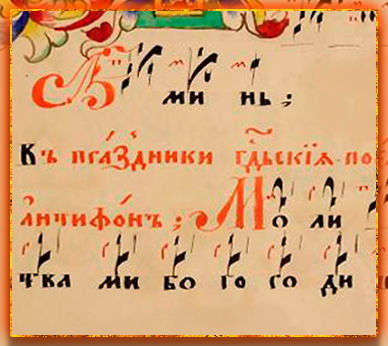 Ами нь ;
Въ пра́здники гд҇ьскїѧ. по
а҆нтифо́нъ ; Мо ли
тва ми бо го ро ди